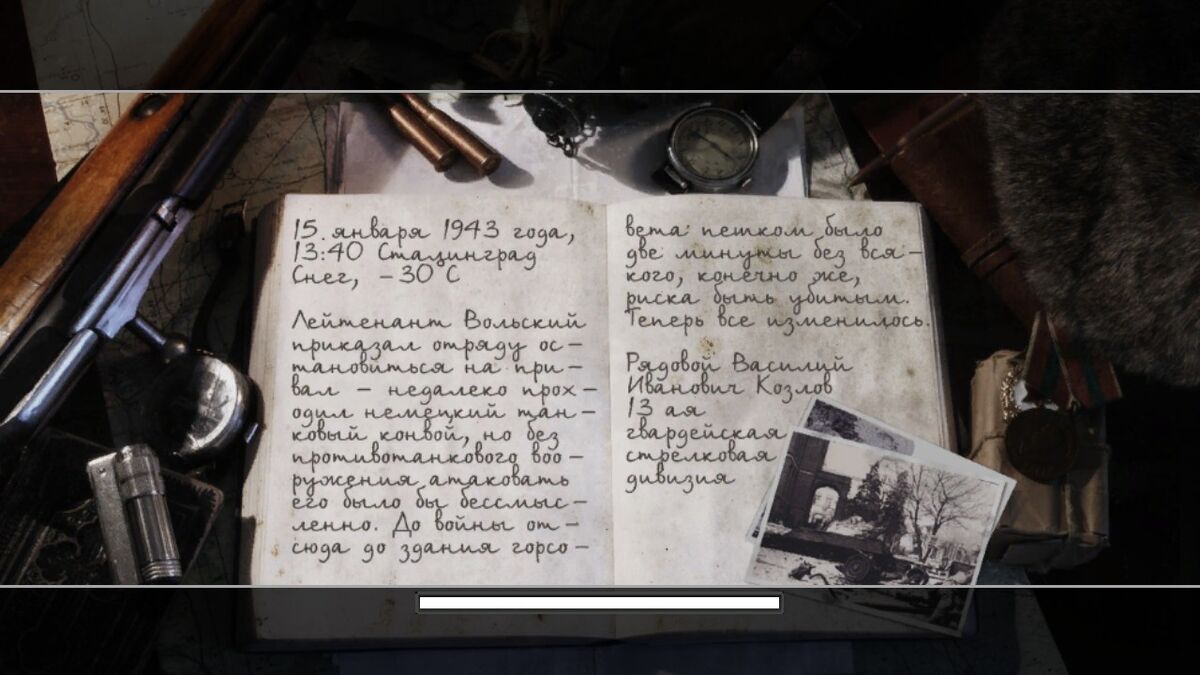 15 января 1943 года,
13:40 Сталинград
Снег, -30 С
Лейтенант Вольский
приказал отряду ос-
тановиться на при-
вал - недалеко прох-
одил немецкий тан-
ковый конвой, но без
противотанкового воо-
ружения атаковать
его было бы бессмыс-
ленно. До войны от-
сюда до здания горсо-
вета пешком было
две минуты без вся-
кого, конечно же,
риска быть убитым.
Теперь все изменилось.
Рядовой Василий
Иванович Козлов
13 ая
гвардейская
стрелковая
дивизия